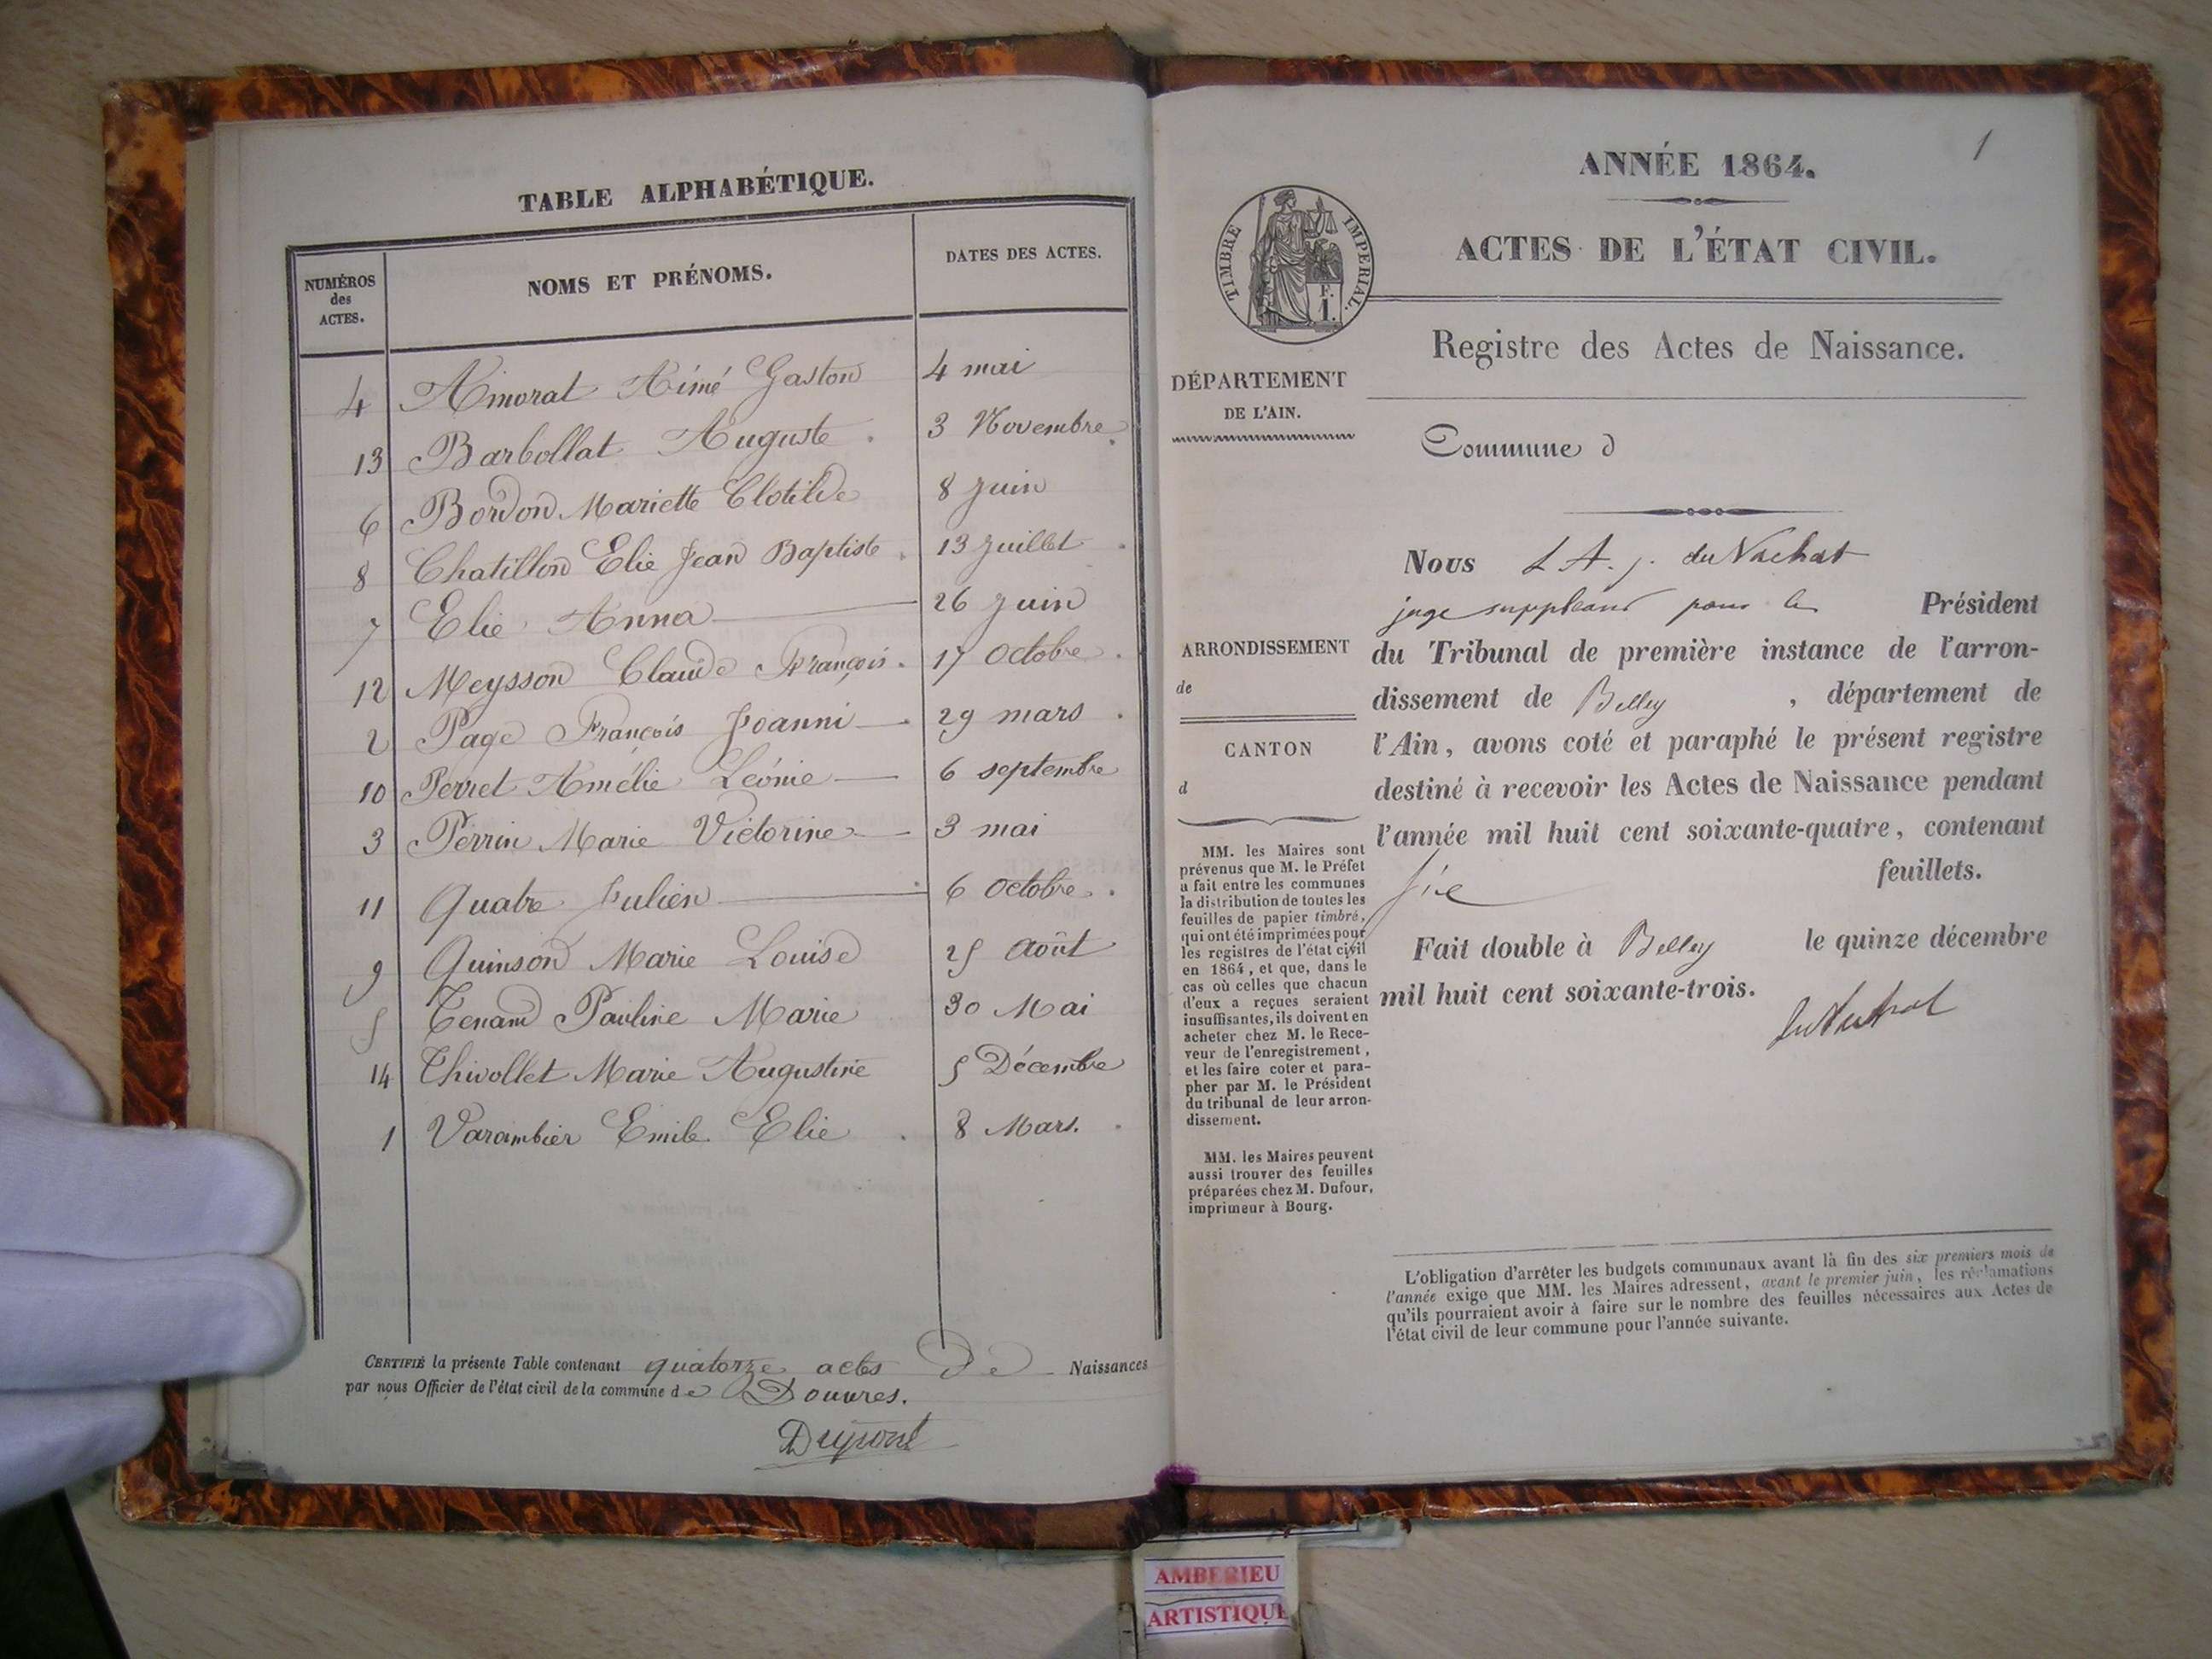 TABLE ALPHABÉTIQUE.
NUMÉROS des ACTES.
NOMS ET PRÉNOMS.
DATES DES ACTES.
4 Amorat Aimé Gaston 4 mai
13 Barbollat Auguste 3 Novembre
6 Bordon Mariette Clotilde 8 Juin
8 Chatillon Elie Jean Baptiste 13 Juillet
7 Elie Anna 26 Juin
12 Meysson Claude François 17 Octobre
2 Page François Joanni 29 mars
10 Perret Amélie Léonie 6 septembre
3 Perrin Marie Victorine 3 mai
11 Quatre Julien 6 Octobre
9 Quinson Marie Louise 25 Août
5 Tenand Pauline Marie 30 Mai
14 Thivollet Marie Augustine 5 Décembre
1 Varambier Emile Elie 8 Mars.
CERTIFIÉ la présente Table contenant quatorze actes de Naissances
par nous Officier de l'état civil de la commune de Douvres.
Dupont
1
ANNÉE 1864.
TIMBRE IMPERIAL.
F.
1.
ACTES DE L'ÉTAT CIVIL.
Registre des Actes de Naissance.
DÉPARTEMENT
DE L'AIN.
Commune d
ARRONDISSEMENT
de
CANTON
d
MM. les Maires sont
prévenus que M. le Préfet
a fait entre les communes
la distribution de toutes les
feuilles de papier timbré,
qui ont été imprimées pour
les registres de l'état civil
en 1864, et que, dans le
cas où celles que chacun
d'eux a reçues seraient
insuffisantes, ils doivent en
acheter chez M. le Rece-
veur de l'enregistrement,
et les faire coter et para-
pher par M. le Président
du tribunal de leur arron-
dissement.
MM. les Maires peuvent
aussi trouver des feuilles
préparées chez M. Dufour,
imprimeur à Bourg.
Nous L A. j. du Vachat
juge suppléant pour le Président
du Tribunal de première instance de l'arron-
dissement de Belley , département de
l'Ain, avons coté et paraphé le présent registre
destiné à recevoir les Actes de Naissance pendant
l'année mil huit cent soixante-quatre, contenant
six feuillets.
Fait double à Belley le quinze décembre
mil huit cent soixante-trois.
du Vachat
L'obligation d'arrêter les budgets communaux avant la fin des six premiers mois de
l'année exige que MM. les Maires adressent, avant le premier juin, les réclamations
qu'ils pourraient avoir à faire sur le nombre des feuilles nécessaires aux Actes de
l'état civil de leur commune pour l'année suivante.
AMBERIEU
ARTISTIQUE